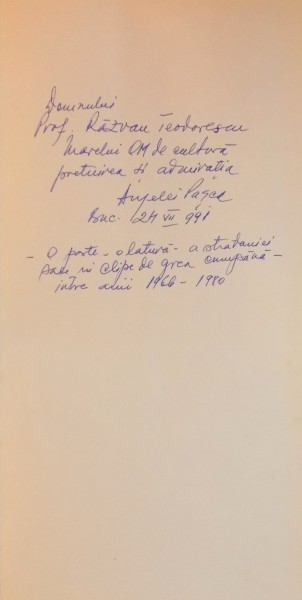 Domnului
Prof. Răzvan Teodorescu
Marelui OM de cultură
prețuirea și admirația
Angelei Pașca
Buc. 24 VII 991
- O parte - o latură - a strădaniei
sale în clipe de grea cumpănă -
între anii 1966 - 1980